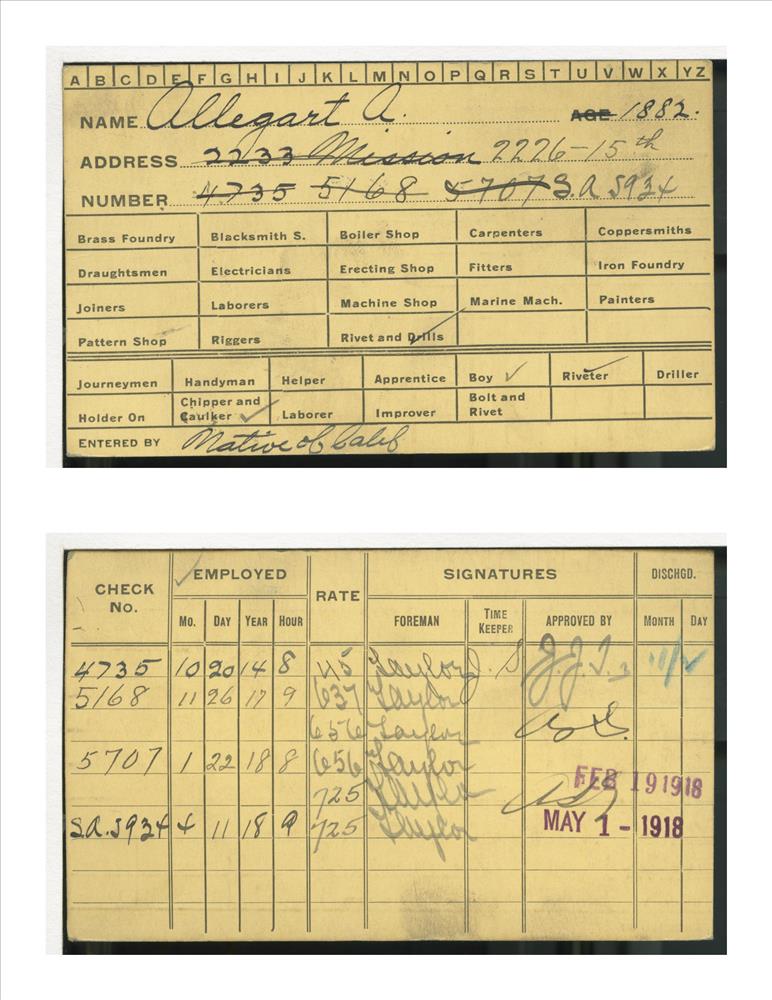 A B C D E F G H I J K L M N O P Q R S T U V W X YZ
NAME Allegart A. AGE 1882.
ADDRESS 2233 Mission 2226-15th
NUMBER 4735 5168 5707 S.A 5934
Brass Foundry Blacksmith S. Boiler Shop Carpenters Coppersmiths
Draughtsmen Electricians Erecting Shop Fitters Iron Foundry
Joiners Laborers Machine Shop Marine Mach. Painters
Pattern Shop Riggers Rivet and Drills
Journeymen Handyman Helper Apprentice Boy ✓ Riveter ✓ Driller
Holder On Chipper and Caulker ✓ Laborer Improver Bolt and Rivet
ENTERED BY Native of Calif
CHECK No. ✓ EMPLOYED RATE SIGNATURES DISCHGD.
Mo. DAY YEAR HOUR FOREMAN TIME KEEPER APPROVED BY MONTH DAY
4735 10 20 14 8 45 Taylor J. S J.J.T.
5168 11 26 17 9 637 Taylor
656 Taylor
5707 1 22 18 8 656 Taylor
725 Taylor FEB 19 1918
S.A. 5934 4 11 18 9 725 Taylor MAY 1 - 1918